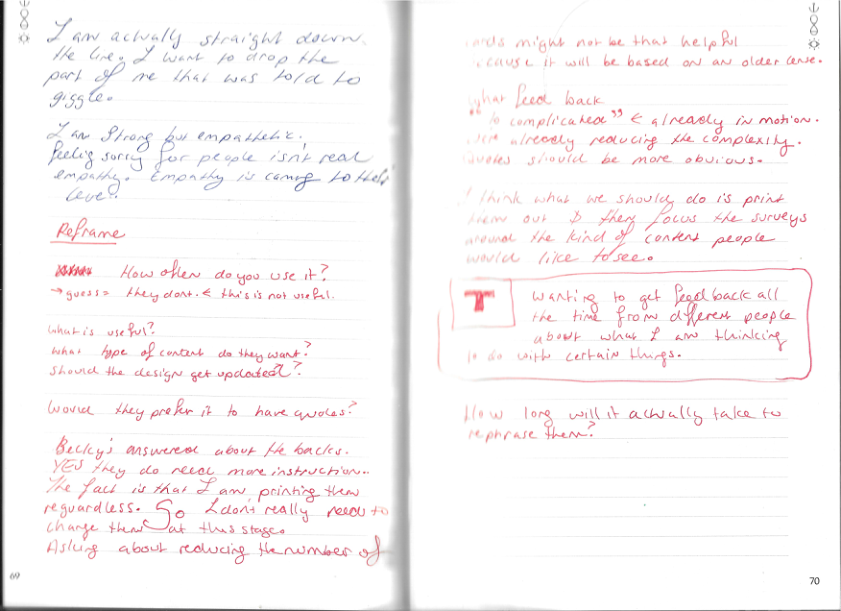 I am actually straight down
the line. I want to drop the
part of me that was told to
giggle.
I am strong but empathetic.
feelig sorry for people isn't real
empathy. Empathy is camng to their
level.
Reframe
How often do you use it?
→ guess = they dont. < this is not useful.
what is useful?
what type of content do they want?
should the design get updated?
Would they prefer it to have quotes?
Becky's answered about the backs.
YES they do need more instruction.
The fact is that I am printing them
reguardless. So I don't really need to
change them at this stage.
Asking about reducing the number of
69
might not be that helpful
it will be based on an older
feed back
"to complicated" < already in motion.
already reducing the complexity.
quotes should be more obvious.
I think what we should do is print
them out & then focus the surveys
around the kind of content people
would like to see.
T wanting to get feed back all
the time from different people
about what I am thinking
to do with certain things.
How long will it actually take to
rephrase them?
70